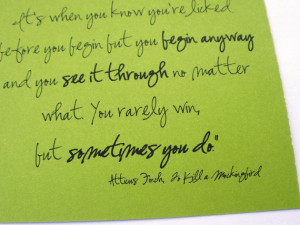 -It's when you know you're licked
before you begin but you begin anyway
and you see it through no matter
what. You rarely win,
but sometimes you do."
Atticus Finch, To Kill a Mockingbird